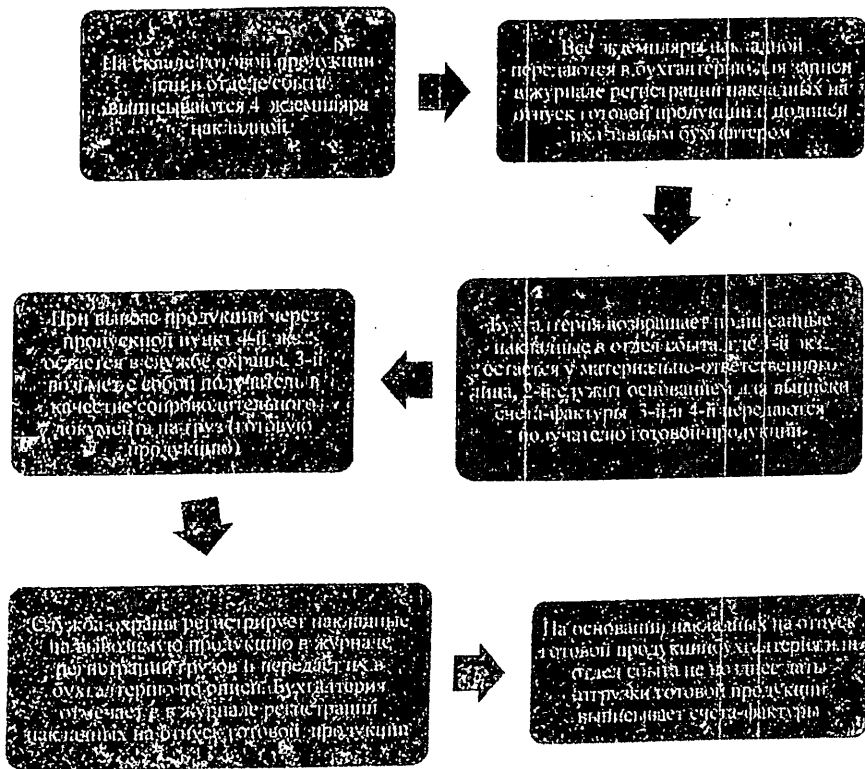 На складе готовой продукции
или в отделе сбыта
выписываются 4 экземпляра
накладной
Все экземпляры накладной
передаются в бухгалтерию для записи
в журнале регистрации накладных на
отпуск готовой продукции и подписи
их главным бухгалтером
Бухгалтерия возвращает подписанные
накладные в отдел сбыта, где 1-й экз.
остается у материально-ответственного
лица, 2-й служит основанием для выписки
счета-фактуры, 3-й и 4-й передаются
получателю готовой продукции
При вывозе продукции через
пропускной пункт 4-й экз.
остается в службе охраны, 3-й
с собой получатель в
качестве сопроводительного
документа на груз (готовую
продукцию)
Служба охраны регистрирует накладные
на вывозимую продукцию в журнале
регистрации грузов и передает их в
бухгалтерию по описи. Бухгалтерия
отмечает в журнале регистрации
накладных на отпуск готовой продукции
На основании накладных на отпуск
готовой продукции бухгалтерия или
отдел сбыта не позднее даты
отгрузки готовой продукции
выписывает счета-фактуры